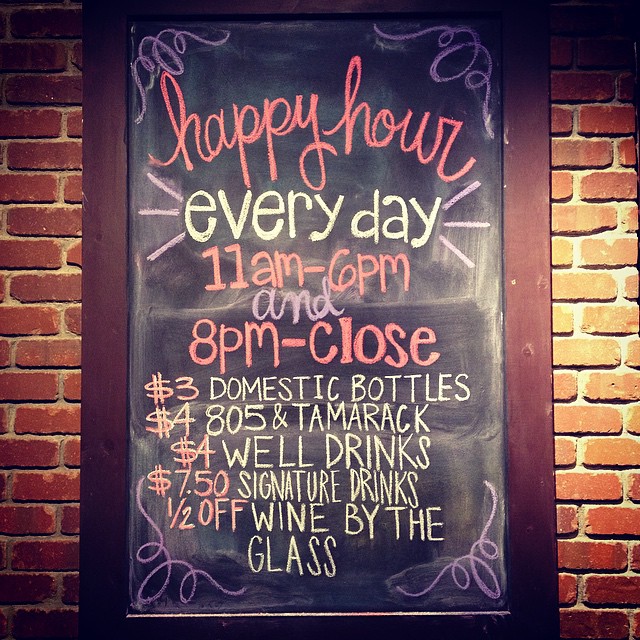 happy hour
every day
11am-6pm
and
8pm-close
$3 DOMESTIC BOTTLES
$4 805 & TAMARACK
$4 WELL DRINKS
$7.50 SIGNATURE DRINKS
1/2 OFF WINE BY THE
GLASS